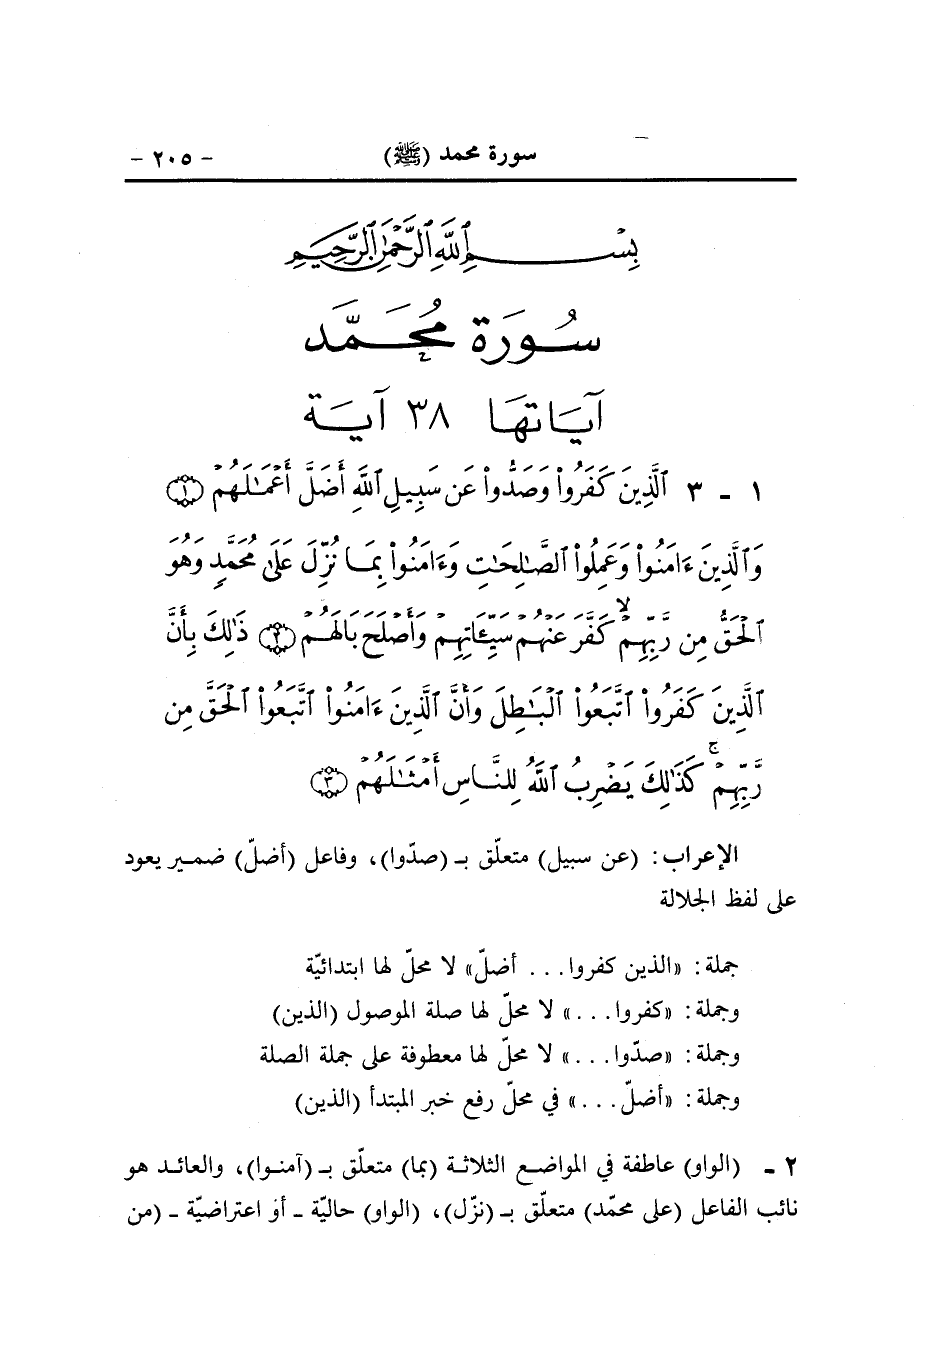 سورة محمد (ﷺ) - ٢٠٥ -
بِسْمِ ٱللَّهِ ٱلرَّحْمَٰنِ ٱلرَّحِيمِ
سُورَة مُحَمَّد
آيَاتهَا ٣٨ آيَة
١ - ٣ ٱلَّذِينَ كَفَرُوا۟ وَصَدُّوا۟ عَن سَبِيلِ ٱللَّهِ أَضَلَّ أَعْمَٰلَهُمْ ﴿١﴾
وَٱلَّذِينَ ءَامَنُوا۟ وَعَمِلُوا۟ ٱلصَّٰلِحَٰتِ وَءَامَنُوا۟ بِمَا نُزِّلَ عَلَىٰ مُحَمَّدٍ وَهُوَ
ٱلْحَقُّ مِن رَّبِّهِمْ ۙ كَفَّرَ عَنْهُمْ سَيِّـَٔاتِهِمْ وَأَصْلَحَ بَالَهُمْ ﴿٢﴾ ذَٰلِكَ بِأَنَّ
ٱلَّذِينَ كَفَرُوا۟ ٱتَّبَعُوا۟ ٱلْبَٰطِلَ وَأَنَّ ٱلَّذِينَ ءَامَنُوا۟ ٱتَّبَعُوا۟ ٱلْحَقَّ مِن
رَّبِّهِمْ ۚ كَذَٰلِكَ يَضْرِبُ ٱللَّهُ لِلنَّاسِ أَمْثَٰلَهُمْ ﴿٣﴾
الإعراب: (عن سبيل) متعلّق بـ (صدّوا)، وفاعل (أضلّ) ضمير يعود
على لفظ الجلالة
جملة: «الذين كفروا... أضلّ» لا محلّ لها ابتدائيّة
وجملة: «كفروا...» لا محلّ لها صلة الموصول (الذين)
وجملة: «صدّوا...» لا محلّ لها معطوفة على جملة الصلة
وجملة: «أضلّ...» في محلّ رفع خبر المبتدأ (الذين)
٢ - (الواو) عاطفة في المواضع الثلاثة (بما) متعلّق بـ (آمنوا)، والعائد هو
نائب الفاعل (على محمّد) متعلّق بـ (نزّل)، (الواو) حاليّة - أو اعتراضيّة - (من